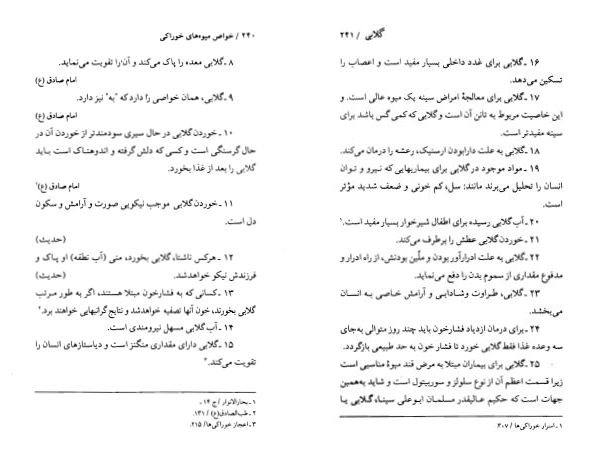 ۲۴۰ / خواص میوه‌های خوراکی
۸ ـ گلابی معده را پاک می‌کند و آن را تقویت می‌نماید.
امام صادق (ع)
۹ ـ گلابی، همان خواصی را دارد که "به" نیز دارد.
امام صادق (ع)
۱۰ ـ خوردن گلابی در حال سیری سودمندتر از خوردن آن در
حال گرسنگی است و کسی که دلش گرفته و اندوهناک است باید
گلابی را بعد از غذا بخورد.
امام صادق (ع)۱
۱۱ ـ خوردن گلابی موجب نیکویی صورت و آرامش و سکون
دل است.
(حدیث)
۱۲ ـ هرکس ناشتا، گلابی بخورد، منی (آب نطفه) او پاک و
فرزندش نیکو خواهد شد. (حدیث)
۱۳ ـ کسانی که به فشارخون مبتلا هستند، اگر به طور مرتب
گلابی بخورند، خون آنها تصفیه خواهد شد و نتایج گرانبهایی خواهند برد.۲
۱۴ ـ آب گلابی مسهل نیرومندی است.
۱۵ ـ گلابی دارای مقداری منگنز است و دیاستازهای انسان را
تقویت می‌کند.۳
۱ ـ بحارالانوار / ج ۱۴ .
۲ ـ طب‌الصادق(ع) / ۱۳۱.
۳ ـ اعجاز خوراکی‌ها / ۲۱۵.
گلابی / ۲۴۱
۱۶ ـ گلابی برای غدد داخلی بسیار مفید است و اعصاب را
تسکین می‌دهد.
۱۷ ـ گلابی برای معالجهٔ امراض سینه یک میوه عالی است. و
این خاصیت مربوط به تانن آن است و گلابی که کمی گس باشد برای
سینه مفیدتر است.
۱۸ ـ گلابی به علت دارابودن ارسنیک، رعشه را درمان می‌کند.
۱۹ ـ مواد موجود در گلابی برای بیماریهایی که نیرو و توان
انسان را تحلیل می‌برند مانند: سل، کم خونی و ضعف شدید مؤثر
است.
۲۰ ـ آب گلابی رسیده برای اطفال شیرخوار بسیار مفید است.۱
۲۱ ـ خوردن گلابی عطش را برطرف می‌کند.
۲۲ ـ گلابی به علت ادرارآور بودن و ملّین بودنش، از راه ادرار و
مدفوع مقداری از سموم بدن را دفع می‌نماید.
۲۳ ـ گلابی، طراوت و شادابی و آرامش خاصی به انسان
می‌بخشد.
۲۴ ـ برای درمان ازدیاد فشارخون باید چند روز متوالی به‌جای
سه وعده غذا فقط گلابی خورد تا فشار خون به حد طبیعی بازگردد.
۲۵ ـ گلابی برای بیماران مبتلا به مرض قند میوهٔ مناسبی است
زیرا قسمت اعظم آن از نوع سلولز و سوربیتول است و شاید به‌همین
جهات است که حکیم عالیقدر مسلمان ابوعلی سینا، گلابی را
۱ ـ اسرار خوراکی‌ها / ۳۰۷